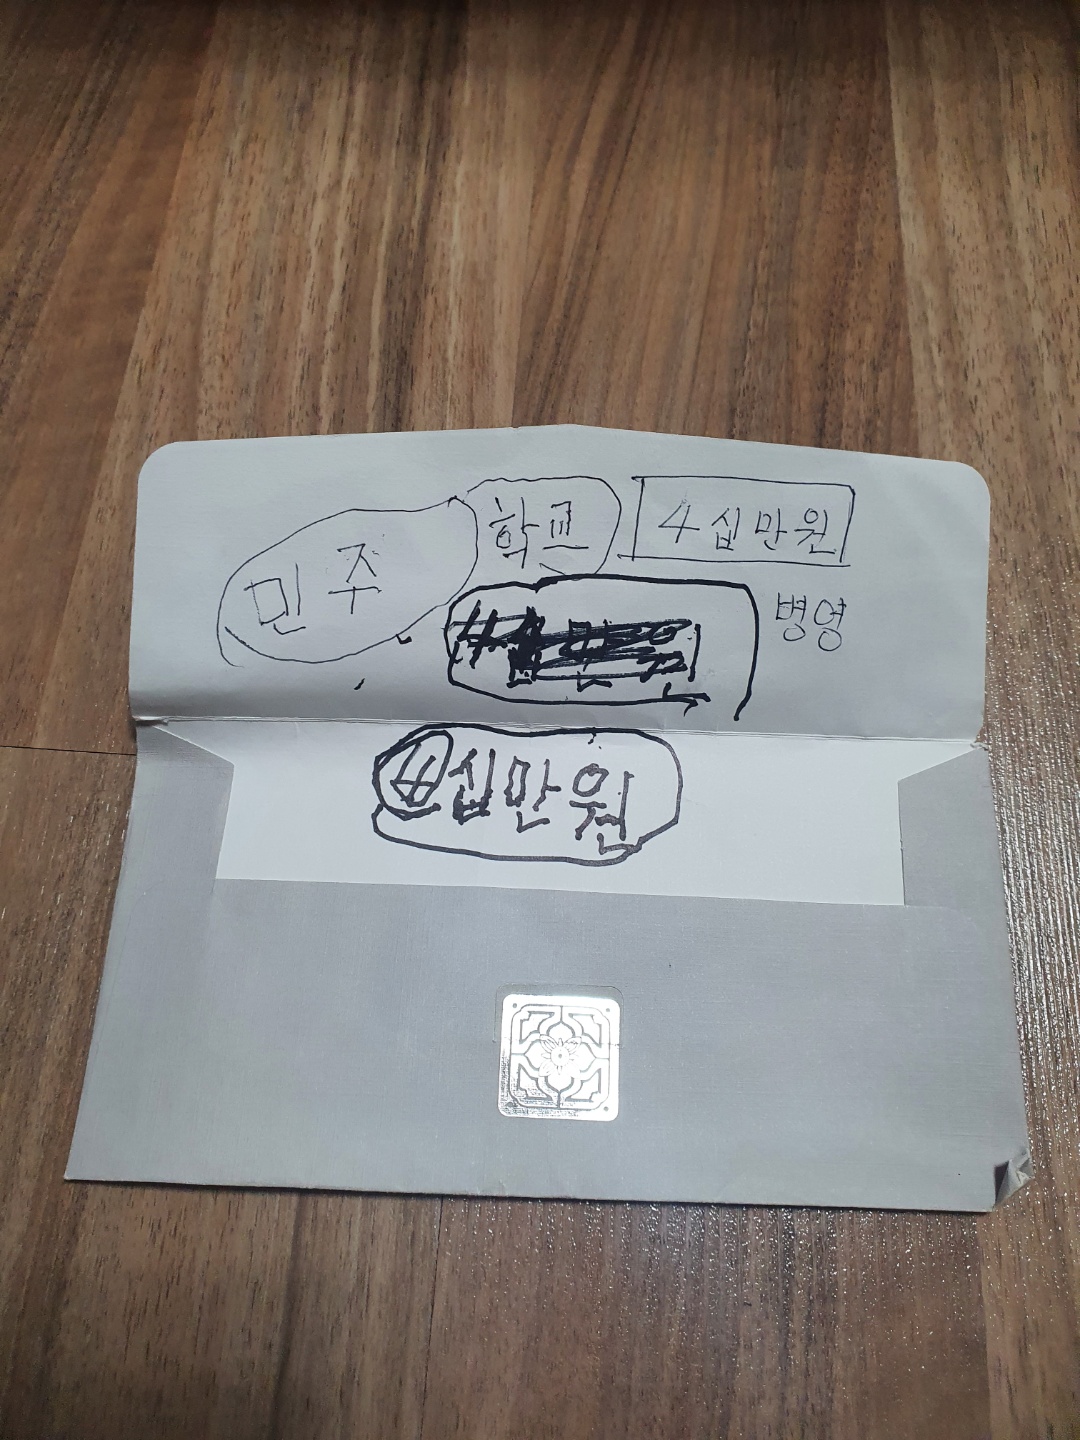 민주 학교 4십만원
병영
4십만원